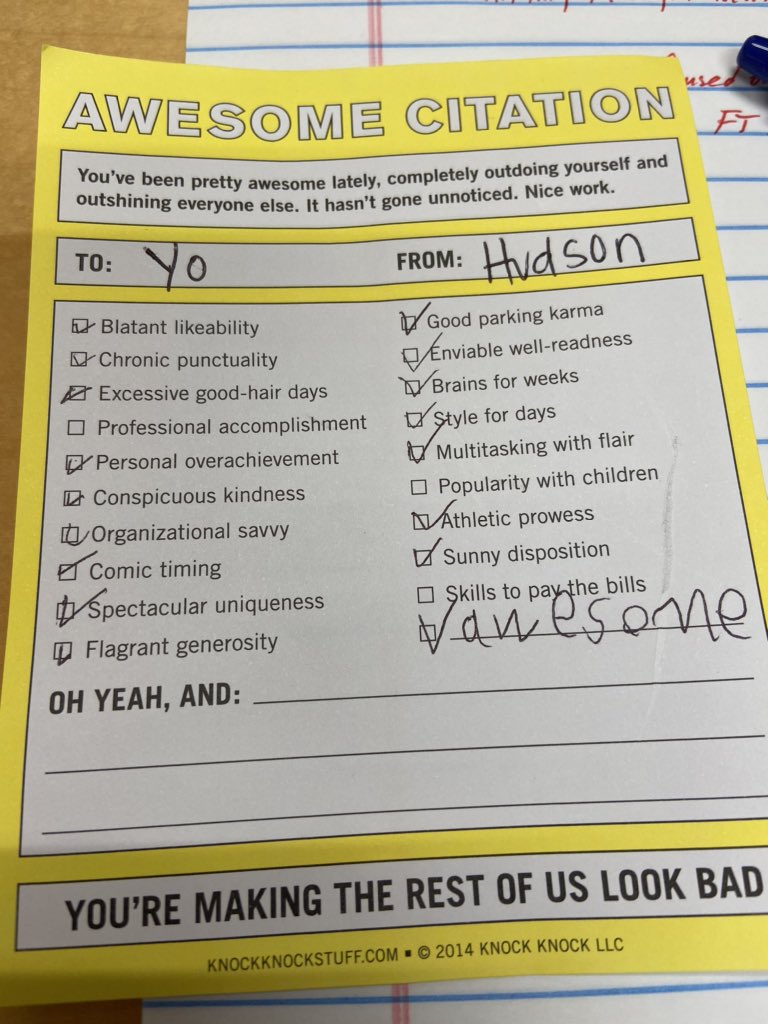 used
FT
AWESOME CITATION
You've been pretty awesome lately, completely outdoing yourself and
outshining everyone else. It hasn't gone unnoticed. Nice work.
TO: Yo FROM: Hudson
Blatant likeability
Chronic punctuality
Excessive good-hair days
Professional accomplishment
Personal overachievement
Conspicuous kindness
Organizational savvy
Comic timing
Spectacular uniqueness
Flagrant generosity
Good parking karma
Enviable well-readness
Brains for weeks
Style for days
Multitasking with flair
Popularity with children
Athletic prowess
Sunny disposition
Skills to pay the bills
awesome
OH YEAH, AND:
YOU'RE MAKING THE REST OF US LOOK BAD
KNOCKKNOCKSTUFF.COM ▪ © 2014 KNOCK KNOCK LLC